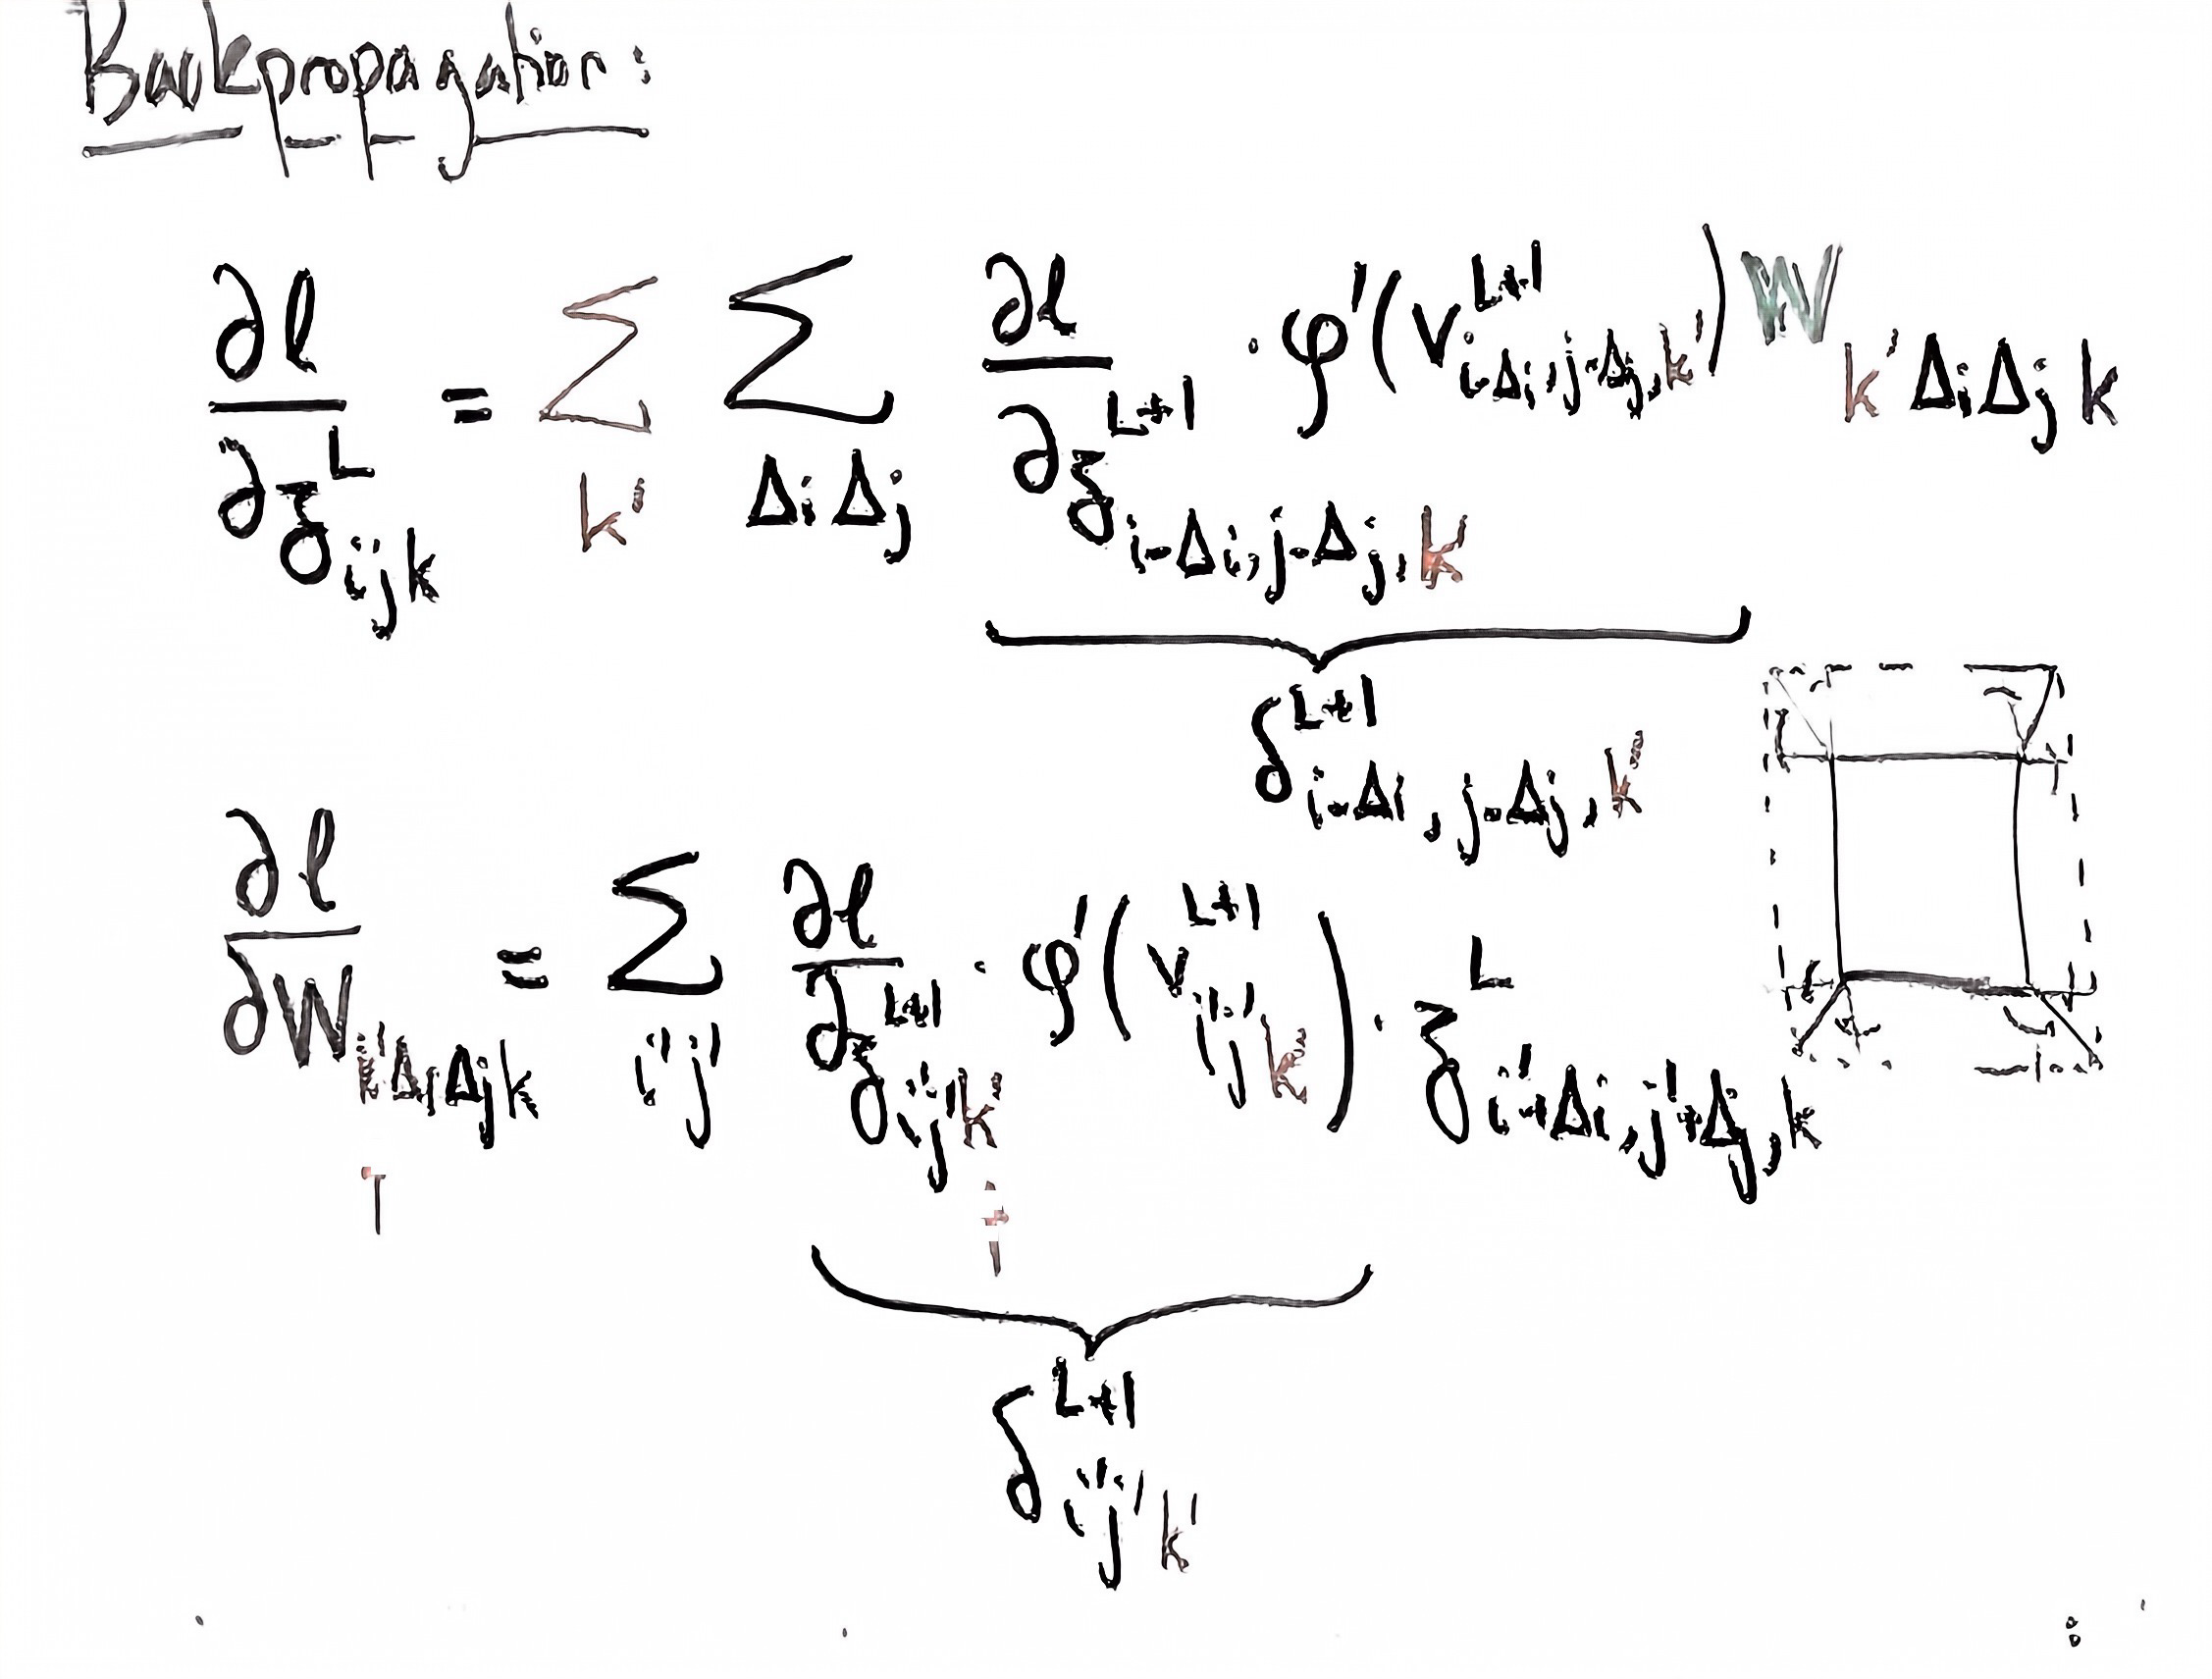 Backpropagation:
∂l/∂z^L_{ijk} = Σ_{k'} Σ_{Δi Δj} ∂l/∂z^{L+1}_{i-Δi, j-Δj, k'} · φ'(v^{L+1}_{i-Δi, j-Δj, k'}) W_{k' Δi Δj k}
δ^{L+1}_{i-Δi, j-Δj, k'}
∂l/∂W_{k' Δi Δj k} = Σ_{i'j'} ∂l/∂z^{L+1}_{i'j'k'} · φ'(v^{L+1}_{i'j'k'}) · z^L_{i'+Δi, j'+Δj, k}
δ^{L+1}_{i'j'k'}